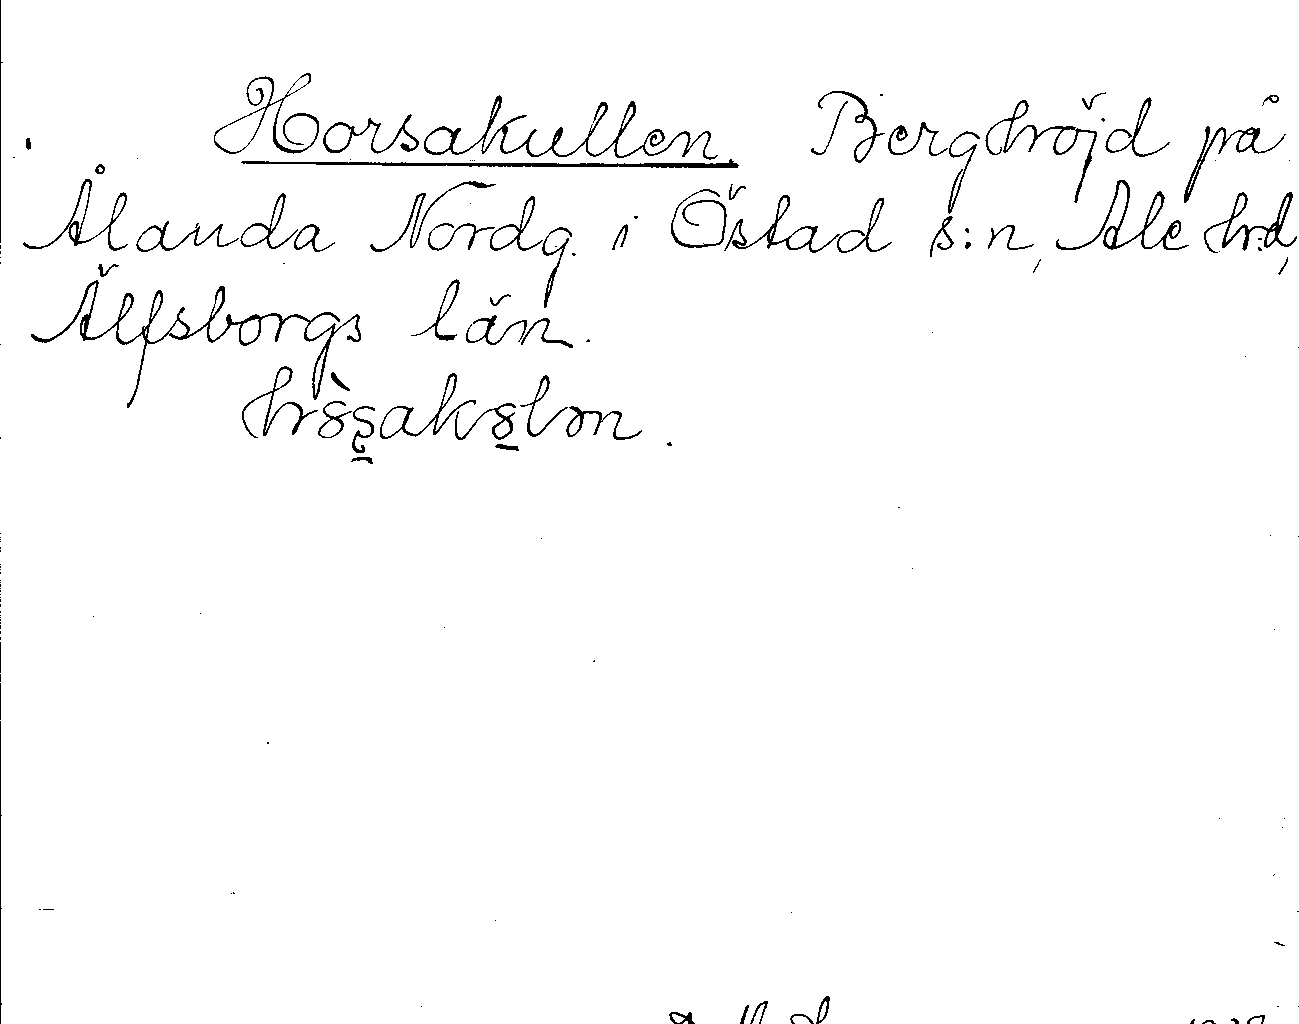 Horsakullen. Berghöjd på
Ålanda Nordg. i Östad s:n, Ale hrd,
Älfsborgs län.